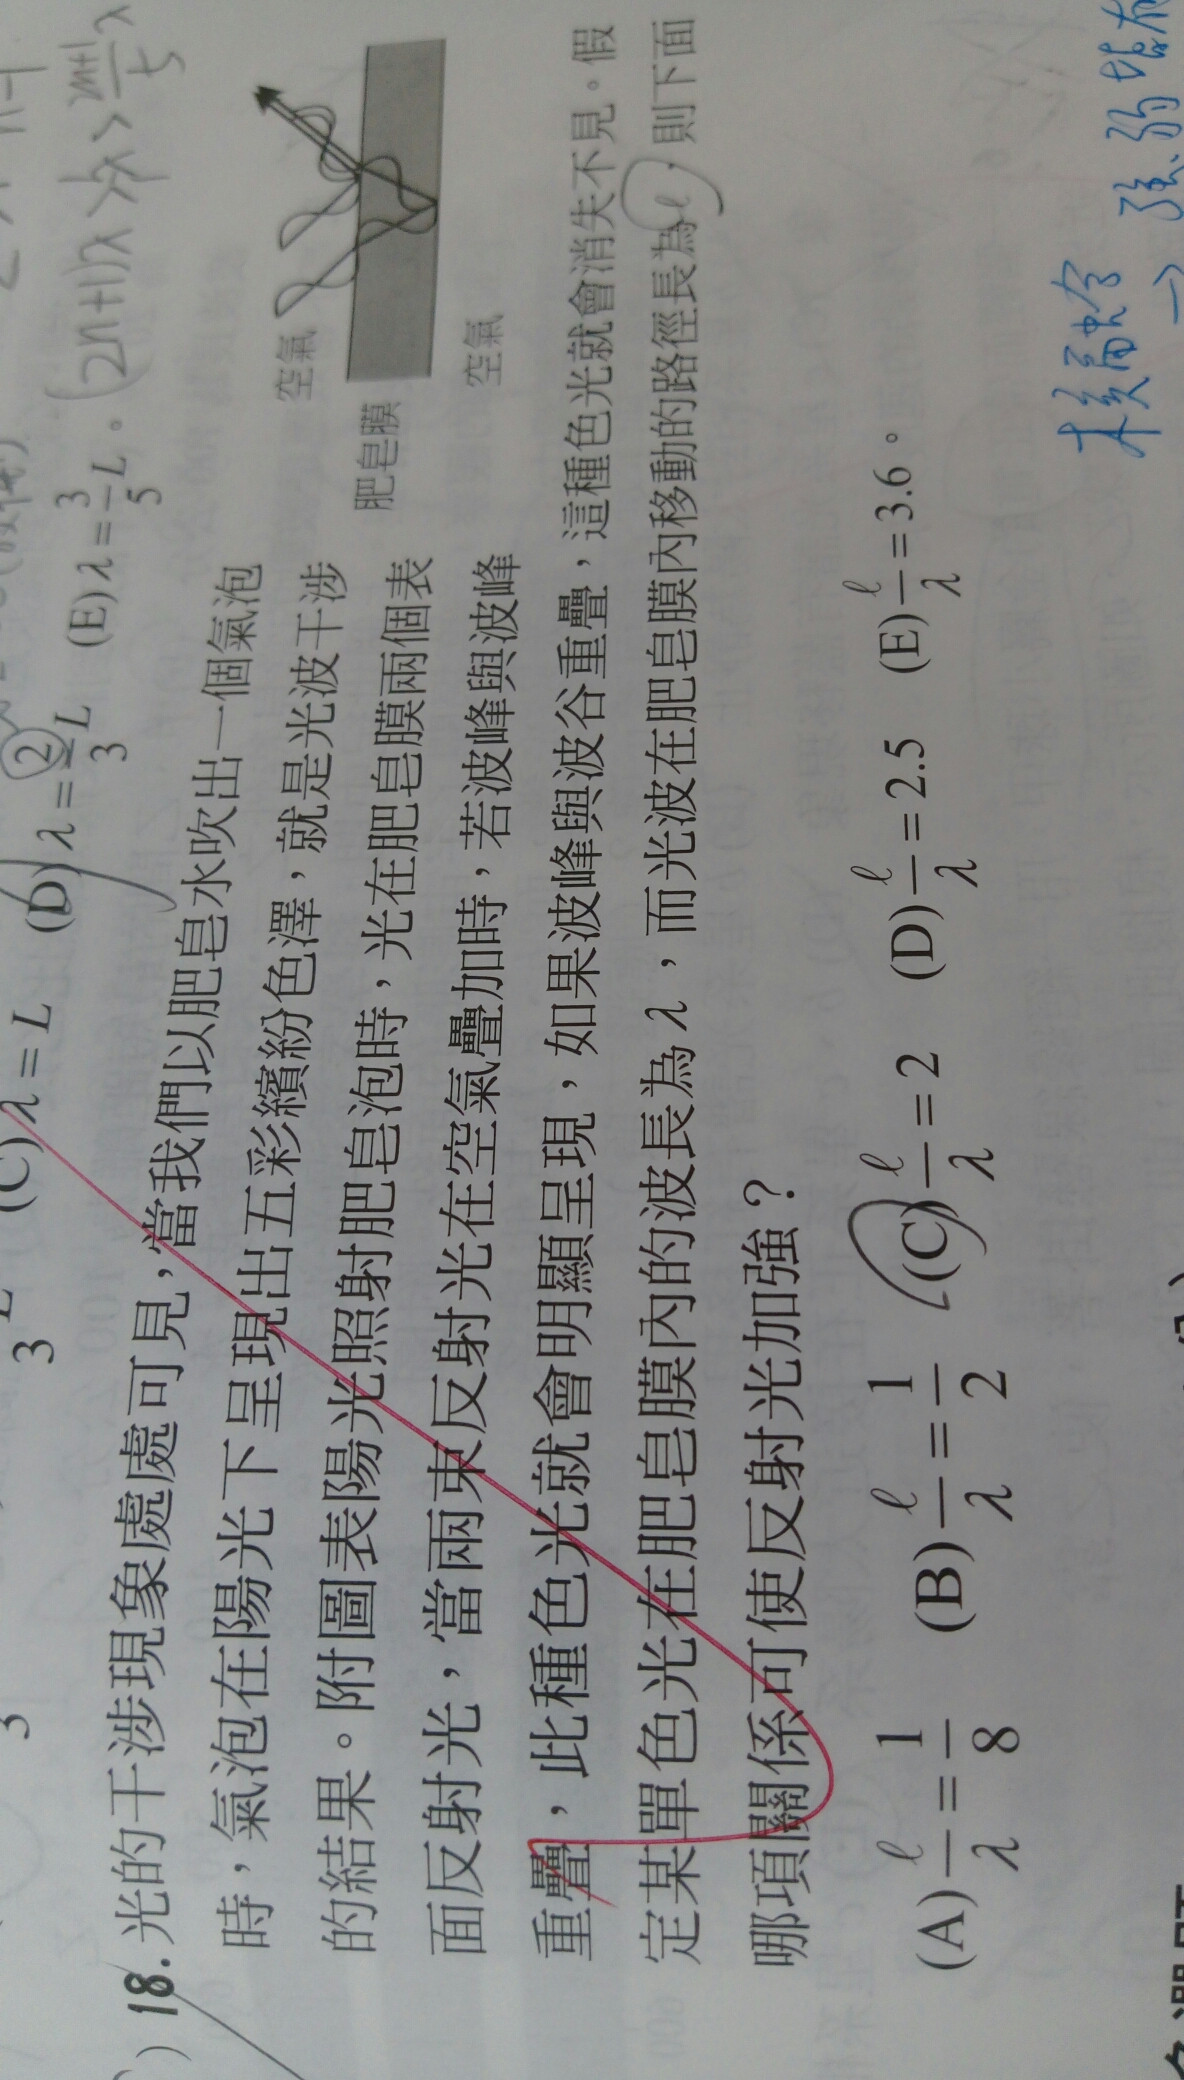 (C) λ = L (D) λ = 2/3 L (E) λ = 3/5 L 。
18. 光的干涉現象處處可見,當我們以肥皂水吹出一個氣泡
時,氣泡在陽光下呈現出五彩繽紛色澤,就是光波干涉
的結果。附圖表陽光照射肥皂泡時,光在肥皂膜兩個表
面反射光,當兩束反射光在空氣疊加時,若波峰與波峰
重疊,此種色光就會明顯呈現,如果波峰與波谷重疊,這種色光就會消失不見。假
定某單色光在肥皂膜內的波長為 λ,而光波在肥皂膜內移動的路徑長為 ℓ,則下面
哪項關係可使反射光加強?
空氣
肥皂膜
空氣
(A) ℓ/λ = 1/8 (B) ℓ/λ = 1/2 (C) ℓ/λ = 2 (D) ℓ/λ = 2.5 (E) ℓ/λ = 3.6 。
核融合
→ 強、弱皆有